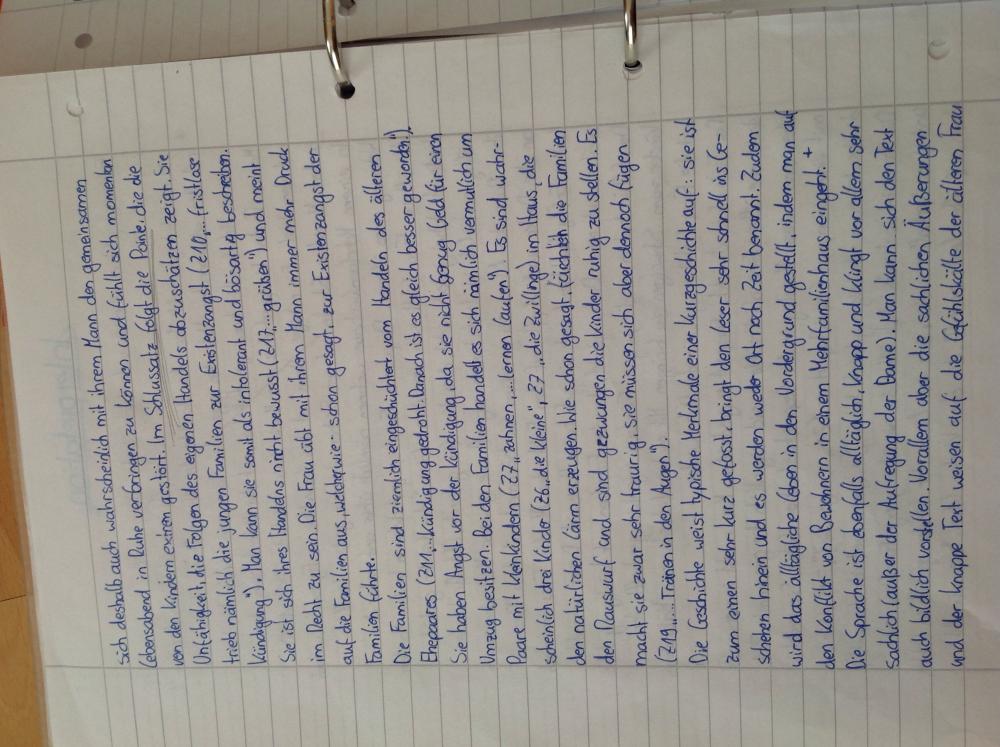 sich deshalb auch wahrscheinlich mit ihrem Mann den gemeinsamen
Lebensabend in Ruhe verbringen zu können und fühlt sich momentan
von den Kindern extrem gestört. Im Schlussatz folgt die Pointe, die die
Unfähigkeit, die Folgen des eigenen Handels abzuschätzen zeigt. Sie
trieb nämlich die jungen Familien zur Existenzangst (Z10 „... fristlose
Kündigung"). Man kann sie somit als intolerant und bösartig beschreiben.
Sie ist sich ihres handelns nicht bewusst (Z17 „... grüßen") und meint
im Recht zu sein. Die Frau übt mit ihrem Mann immer mehr Druck
auf die Familien aus, welcher wie - schon gesagt, zur Existenzangst der
Familien führte.
Die Familien sind ziemlich eingeschüchtert vom handeln des älteren
Ehepaares (Z11 „... Kündigung gedroht. Danach ist es gleich besser geworden!").
Sie haben Angst vor der Kündigung, da sie nicht genug Geld für einen
Umzug besitzen. Bei den Familien handelt es sich nämlich vermutlich um
Paare mit Kleinkindern (Z7 „zahnen, ... lernen laufen"). Es sind wahr-
scheinlich drei Kinder (Z6 „die Kleine", Z7 „die Zwillinge) im Haus, die
den natürlichen Lärm erzeugen. Wie schon gesagt, fürchten die Familien
den Rauswurf und sind gezwungen die Kinder ruhig zu stellen. Es
macht sie zwar sehr traurig, sie müssen sich aber dennoch fügen
(Z19 „... Tränen in den Augen").
Die Geschichte weist typische Merkmale einer Kurzgeschichte auf: sie ist
zum einen sehr kurz gefasst, bringt den Leser sehr schnell ins Ge-
schehen hinein und es werden weder Ort noch Zeit benannt. Zudem
wird das alltägliche Leben in den Vordergrund gestellt, indem man auf
den Konflikt von Bewohnern in einem Mehrfamilienhaus eingeht. +
Die Sprache ist ebenfalls alltäglich, knapp und klingt vor allem sehr
sachlich (außer der Aufregung der Dame). Man kann sich den Text
auch bildlich vorstellen. Vorallem aber die sachlichen Äußerungen
und der knappe Text weisen auf die Gefühlskälte der älteren Frau